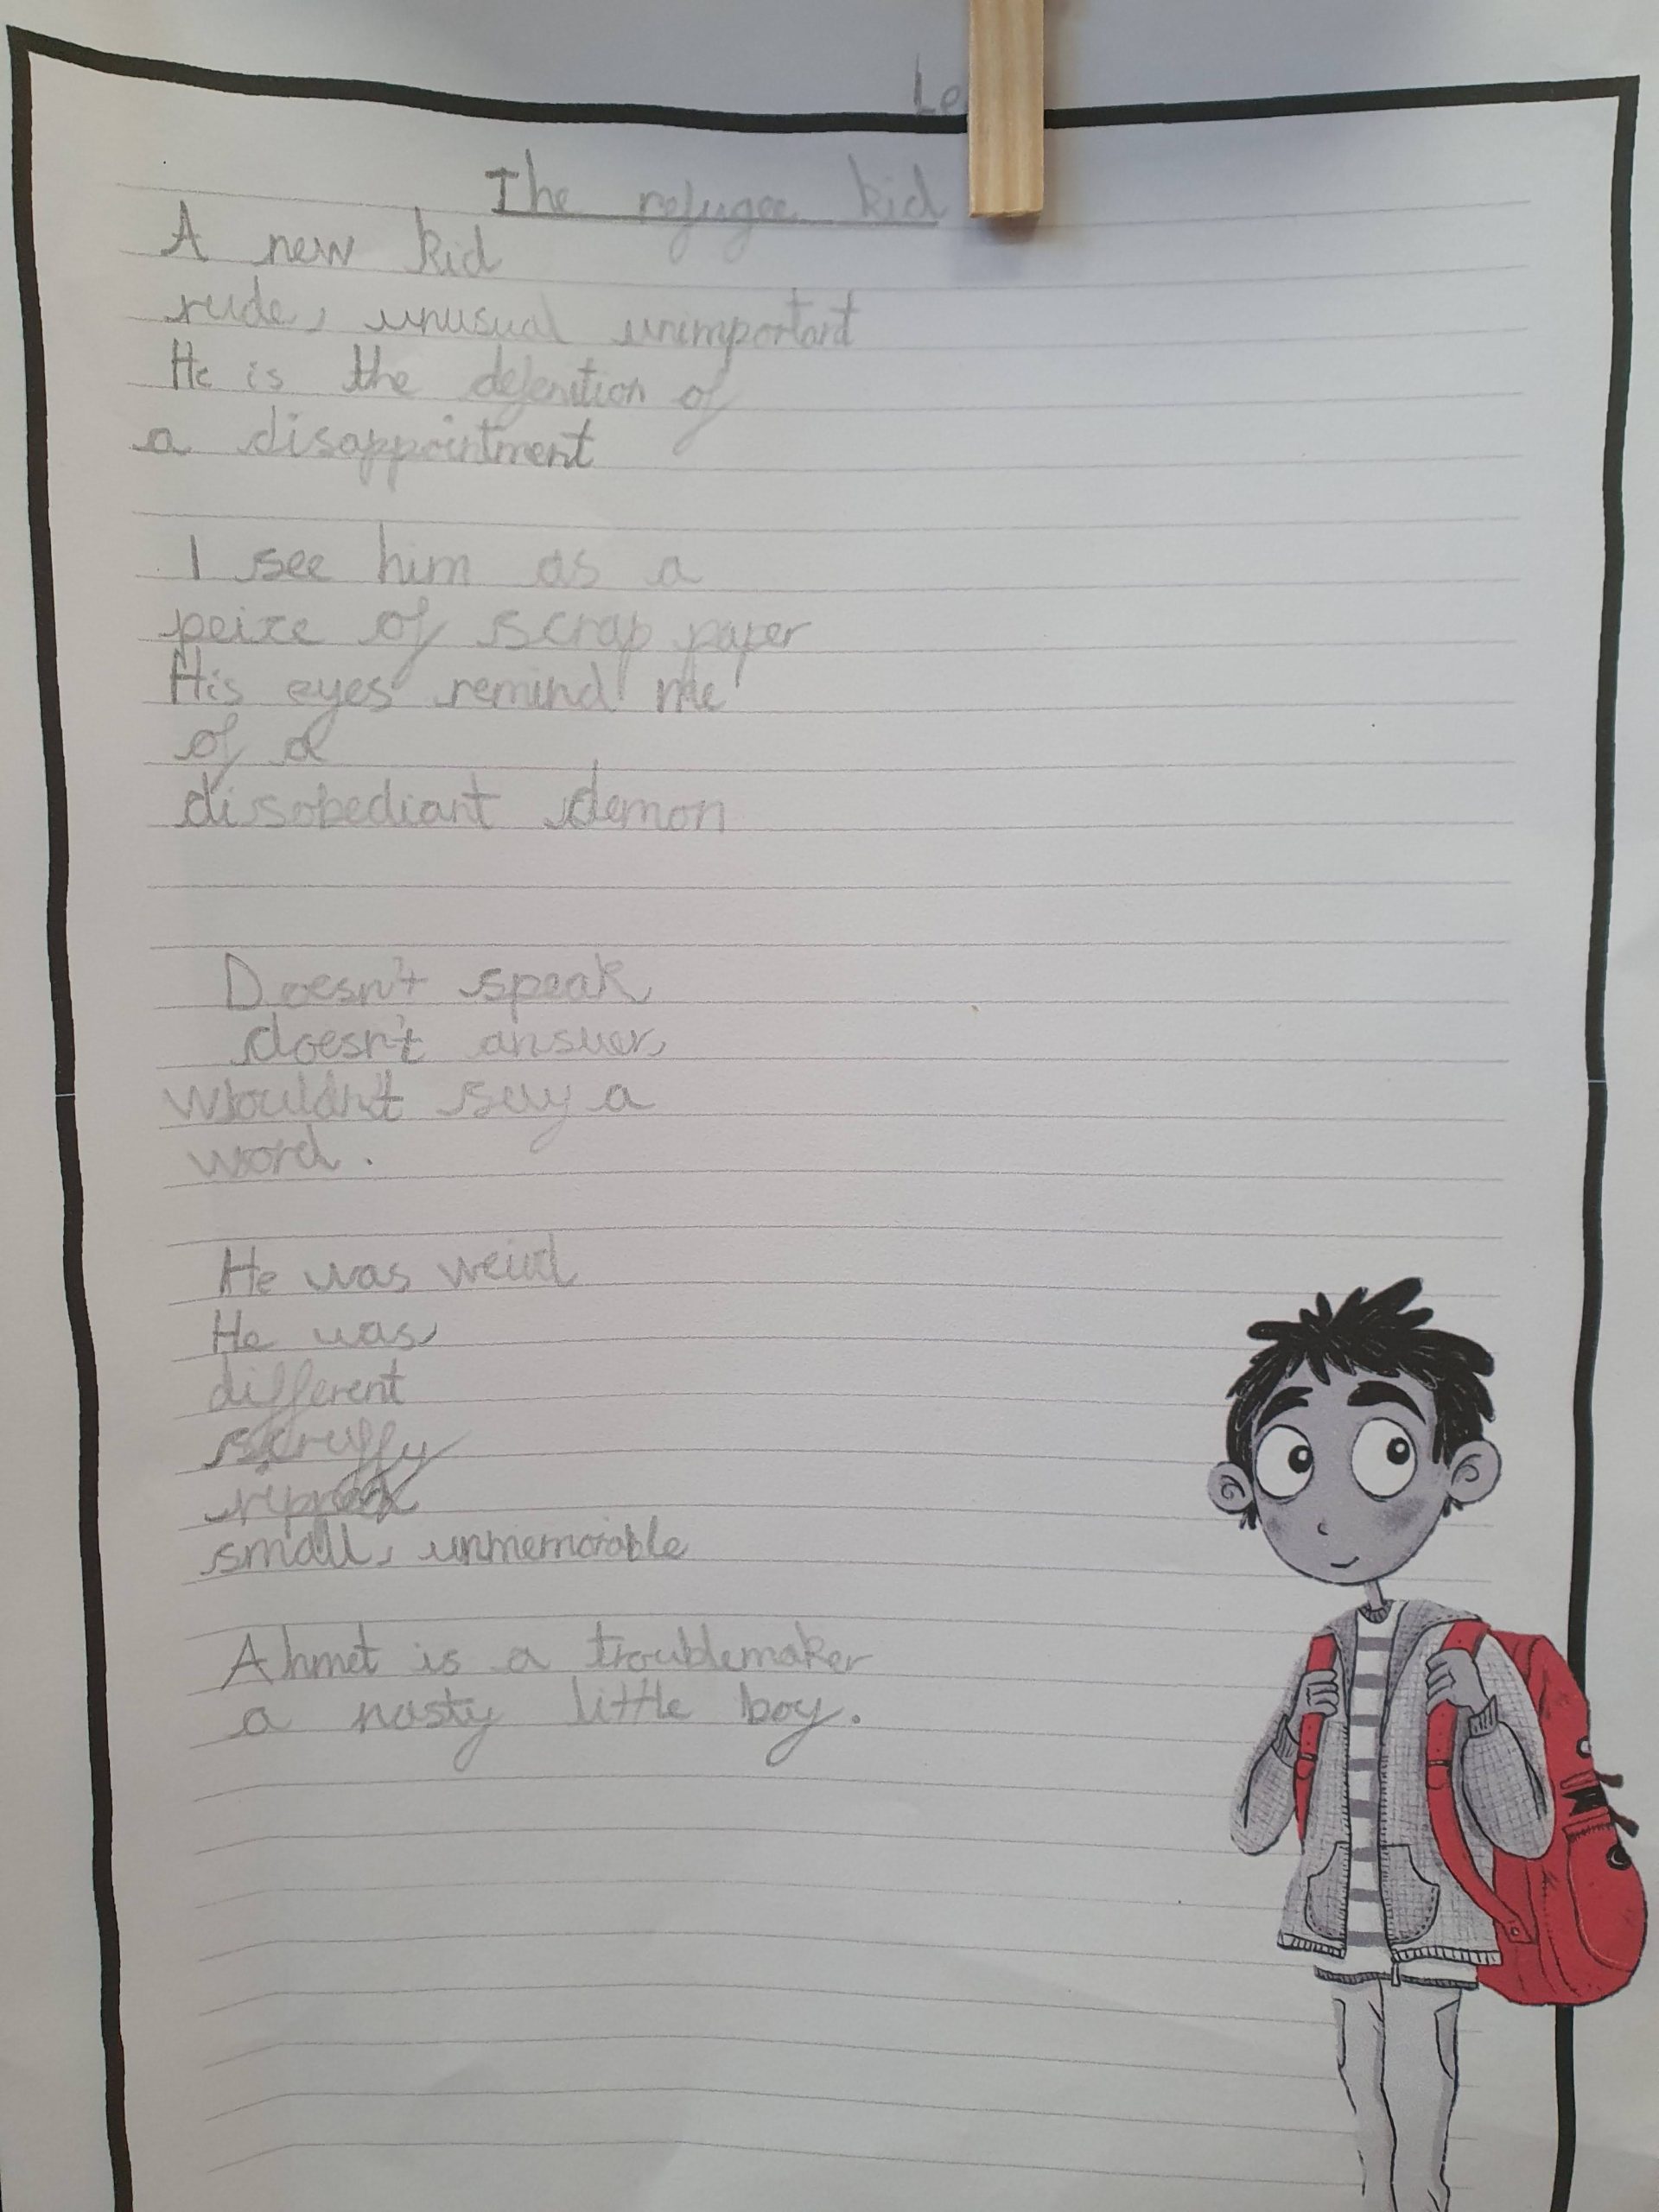 Le
The refugee kid
A new kid
rude, unusual unimportant
He is the defenition of
a disappointment
I see him as a
peixe of scrap paper
His eyes remind me
of a
disobediant demon
Doesn't speak,
doesn't answer,
Wouldn't say a
word.
He was weird
He was
different
scruffy
small, unmemorable
Ahmet is a troublemaker
a nasty little boy.